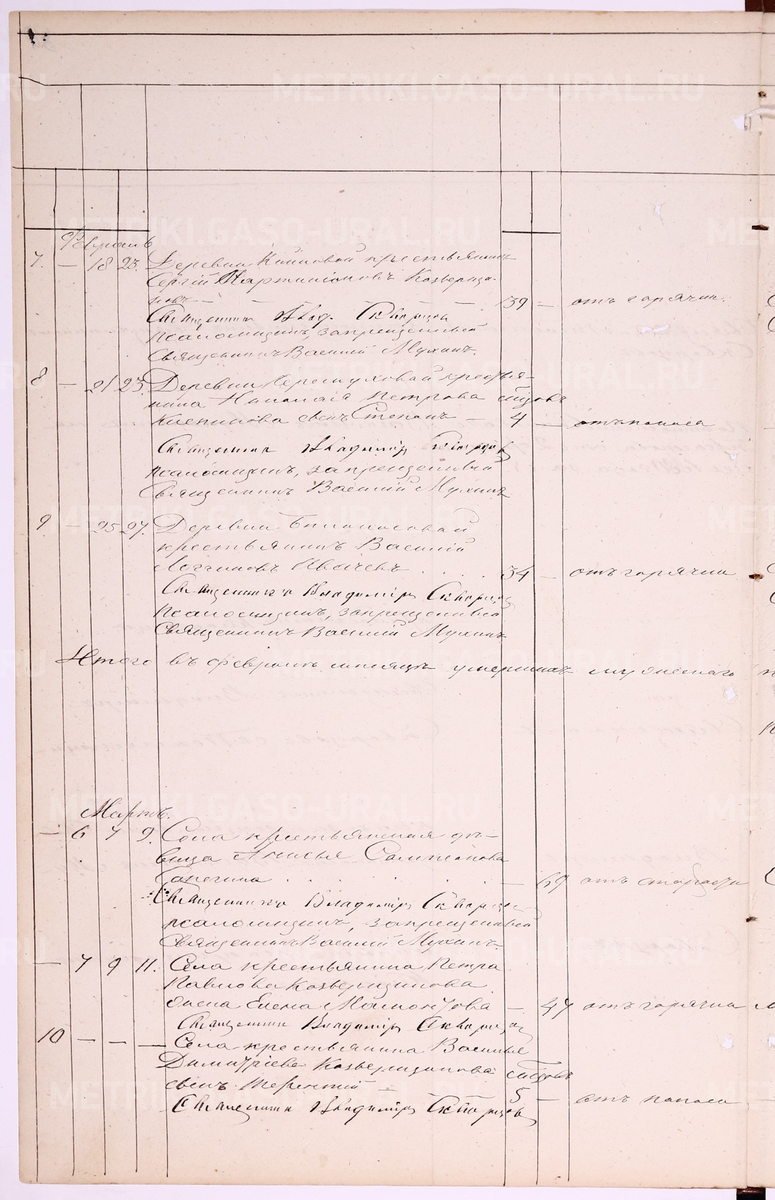 METRIKI.GASO-URAL.RU
Февраль
7. — 18 23. Деревни крестьянинъ
Сергій
новъ — 39 — отъ горячки.
Священникъ Влад. Скворцовъ
псаломщикъ, запрещенный
Священникъ Василій Мухинъ.
8 — 21 23. Деревни крестья-
нина Николая Петрова
сынъ Степанъ — 4 — отъ поноса
Священникъ Владиміръ Скворцовъ
псаломщикъ, запрещенный
Священникъ Василій Мухинъ
9 — 25 27. Деревни
крестьянинъ Василій
Логиновъ 34 — отъ горячки
Священникъ Владиміръ Скворцовъ
псаломщикъ, запрещенный
Священникъ Василій Мухинъ
Итого въ февралѣ мѣсяцѣ умершихъ мужескаго
Мартъ.
— 6 7 9. Села крестьянская дѣ-
вица Сампсонова
— 69 отъ старости
Священникъ Владиміръ Скворцовъ
псаломщикъ, запрещенный
Священникъ Василій Мухинъ
— 7 9 11. Села крестьянина Петра
Павлова
жена Елена — 47 отъ горячки
Священникъ Владиміръ Скворцовъ
10 — — — Села крестьянина Василья
Димитріева
сынъ Терентій — 5 — отъ поноса
Священникъ Владиміръ Скворцовъ